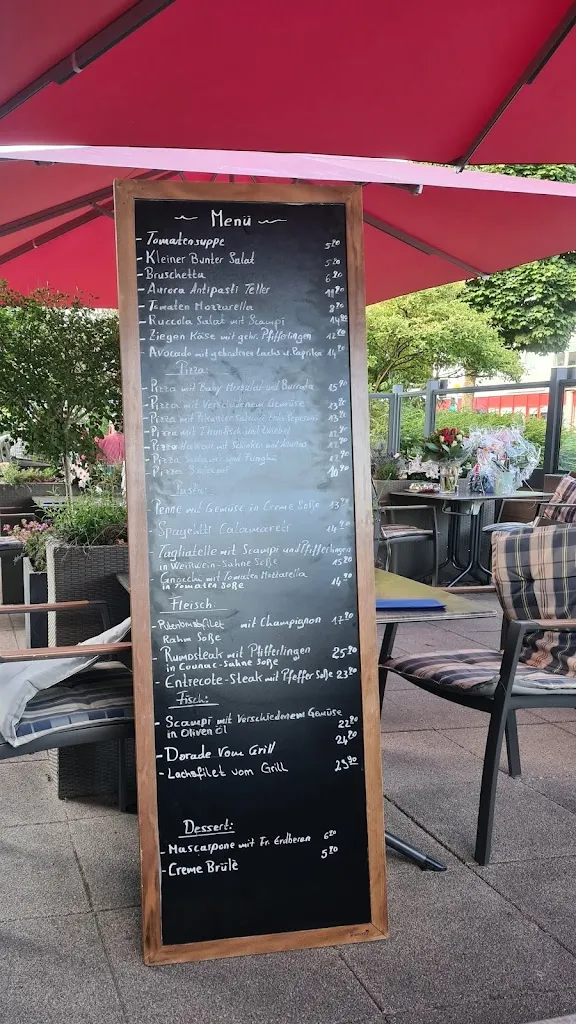 Menü
- Tomatensuppe 5,90
- Kleiner Bunter Salat 5,90
- Bruschetta 6,90
- Aurora Antipasti Teller
- Tomaten Mozzarella
- Ruccola Salat mit Scampi 14,90
- Ziegen Käse mit gebr. Pfifferlingen
- Avocado mit gebratener Lachs u. Paprika 14,90
Pizza:
- Pizza mit Baby und Burrata
- Pizza mit Verschiedenem Gemüse
- Pizza mit
- Pizza mit Thunfisch und Zwiebel
- Pizza Hawaii mit Schinken und Ananas
- Pizza Salami und Funghi
- Pizza Salami 10,90
Pasta:
- Penne mit Gemüse in Creme Soße 13,90
- Spaghetti Calamareti 14,90
- Tagliatelle mit Scampi und Pfifferlingen
in Weißwein-Sahne Soße 15,90
- Gnocchi mit Tomaten Mozzarella
in Tomaten Soße 14,90
Fleisch:
- mit Champignon 17,90
Rahm Soße
- Rumpsteak mit Pfifferlingen 25,90
in Cognac-Sahne Soße
- Entrecote-Steak mit Pfeffer Soße 23,90
Fisch:
- Scampi mit Verschiedenem Gemüse
in Oliven Öl 22,90
- Dorade Vom Grill 24,90
- Lachsfilet vom Grill 23,90
Dessert:
- Mascarpone mit Fr. Erdberen 6,90
- Creme Brülè 5,90